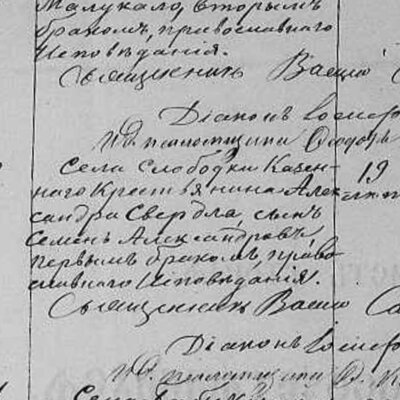 Малукало, вторымъ
бракомъ, православнаго
Исповѣданія.
Священникъ Васи
Діаконъ Іосиф
И.д. псаломщика Ѳеодоръ
Села Слободки Казен- 19
наго Крестьянина Алек-
сандра Свердла, сынъ
Семенъ Александровъ,
первымъ бракомъ, право-
славнаго Исповѣданія.
Священникъ Васи
Діаконъ Іосиф
И.д. псаломщика Ѳ.
Села